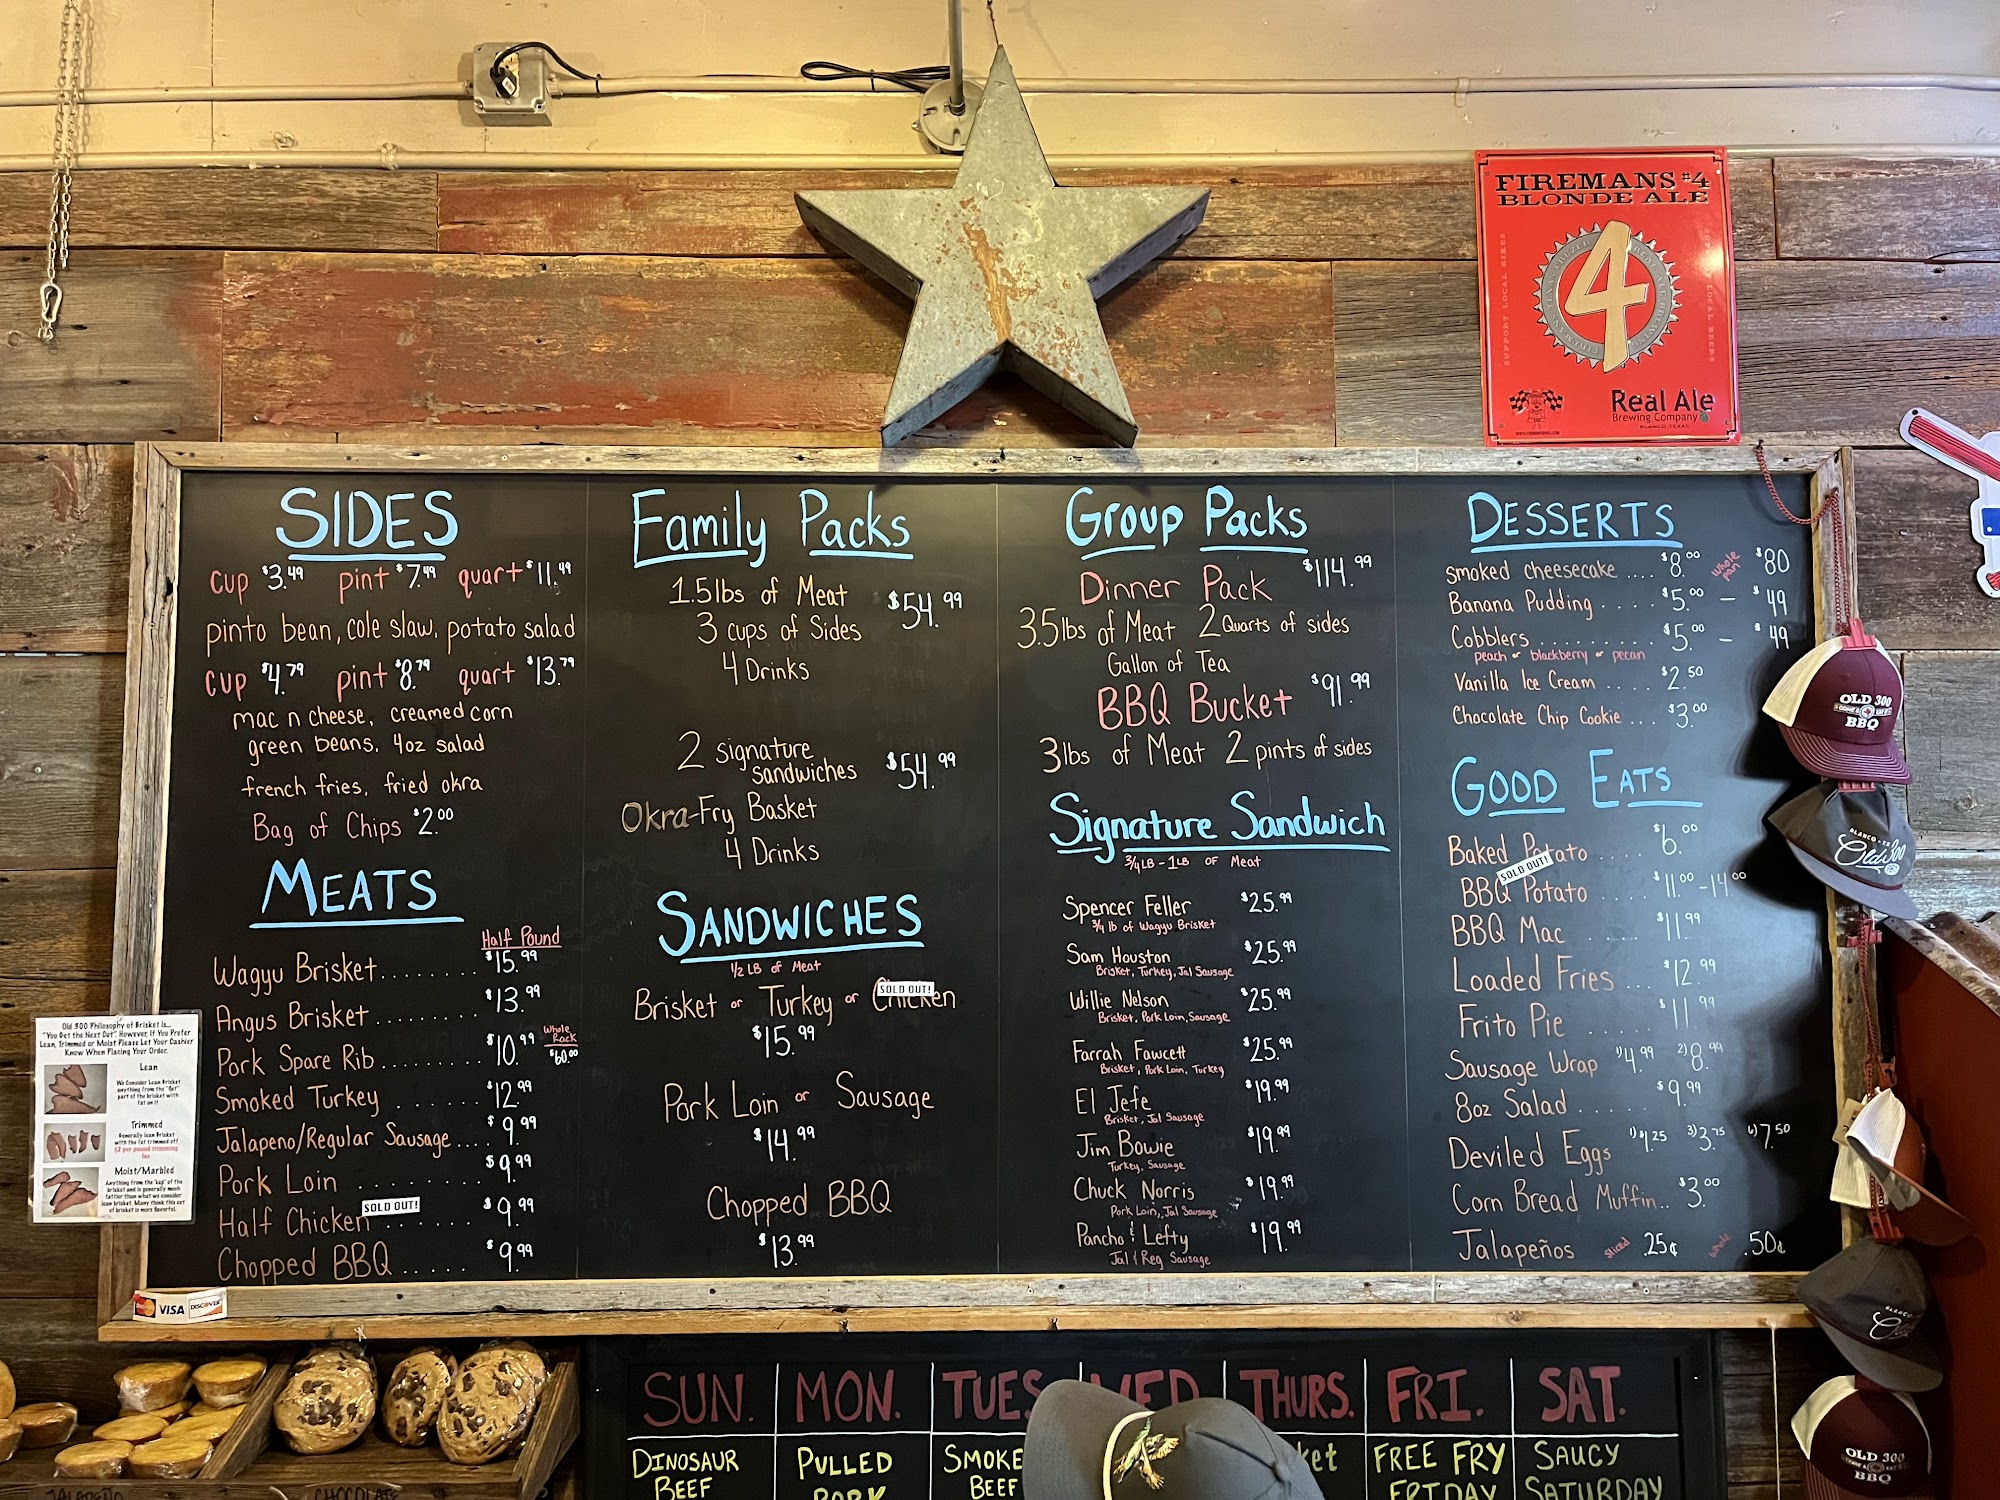 FIREMANS #4
BLONDE ALE
SUPPORT LOCAL BIKES
4
Real Ale
Brewing Company
BLANCO, TEXAS
SIDES
cup $3.49 pint $7.49 quart $11.49
pinto bean, cole slaw, potato salad
cup $4.79 pint $8.79 quart $13.79
mac n cheese, creamed corn
green beans, 4oz salad
french fries, fried okra
Bag of Chips $2.00
MEATS
Half Pound
Wagyu Brisket........ $15.99
Angus Brisket......... $13.99
Pork Spare Rib........ $10.99 Whole Rack $60.00
Smoked Turkey ....... $12.99
Jalapeno/Regular Sausage.... $9.99
Pork Loin ........ $9.99
SOLD OUT!
Half Chicken ....... $9.99
Chopped BBQ ..... $9.99
Family Packs
1.5lbs of Meat $54.99
3 cups of Sides
4 Drinks
2 signature
sandwiches $54.99
Okra-Fry Basket
4 Drinks
SANDWICHES
1/2 LB of Meat
Brisket or Turkey or Chicken
SOLD OUT!
$15.99
Pork Loin or Sausage
$14.99
Chopped BBQ
$13.99
Group Packs
Dinner Pack $114.99
3.5lbs of Meat 2 Quarts of sides
Gallon of Tea
BBQ Bucket $91.99
3lbs of Meat 2 pints of sides
Signature Sandwich
3/4 LB - 1 LB OF Meat
Spencer Feller $25.99
3/4 lb of Wagyu Brisket
Sam Houston $25.99
Brisket, Turkey, Jal Sausage
Willie Nelson $25.99
Brisket, Pork Loin, Sausage
Farrah Fawcett $25.99
Brisket, Pork Loin, Turkey
El Jefe $19.99
Brisket, Jal Sausage
Jim Bowie $19.99
Turkey, Sausage
Chuck Norris $19.99
Pork Loin, Jal Sausage
Pancho & Lefty $19.99
Jal & Reg Sausage
DESSERTS
smoked cheesecake .... $8.00 whole pan $80
Banana Pudding .... $5.00 - $49
Cobblers .......... $5.00 - $49
peach or blackberry or pecan
Vanilla Ice Cream .... $2.50
Chocolate Chip Cookie ... $3.00
GOOD EATS
Baked Potato ..... $6.00
SOLD OUT!
BBQ Potato $11.00-14.00
BBQ Mac ..... $11.99
Loaded Fries ... $12.99
Frito Pie ..... $11.99
Sausage Wrap 1) 4.99 2) 8.99
8oz Salad ...... $9.99
Deviled Eggs 1) $1.25 3) 3.75 6) 7.50
Corn Bread Muffin.. $3.00
Jalapeños sliced .25¢ whole .50¢
Old 300 Philosophy of Brisket Is...
"You Get the Next Cut". However, If You Prefer
Lean, Trimmed or Moist Please Let Your Cashier
Know When Placing Your Order.
Lean
We Consider Lean Brisket
anything from the "flat"
part of the brisket with
fat on it
Trimmed
Generally lean Brisket
with the fat trimmed off
$2 per pound trimming
fee
Moist/Marbled
Anything from the "cap" of the
brisket and is generally much
fattier than what we consider
lean brisket. Many think this cut
of brisket is more flavorful.
VISA
DISCOVER
OLD 300
BBQ
BLANCO, TX
Old 300
OLD 300
COME & EAT IT
BBQ
SUN. MON. TUES. WED THURS. FRI. SAT.
DINOSAUR
BEEF
PULLED
PORK
SMOKE
BEEF
FREE FRY
FRIDAY
SAUCY
SATURDAY
JALAPEÑO
CHOCOLATE